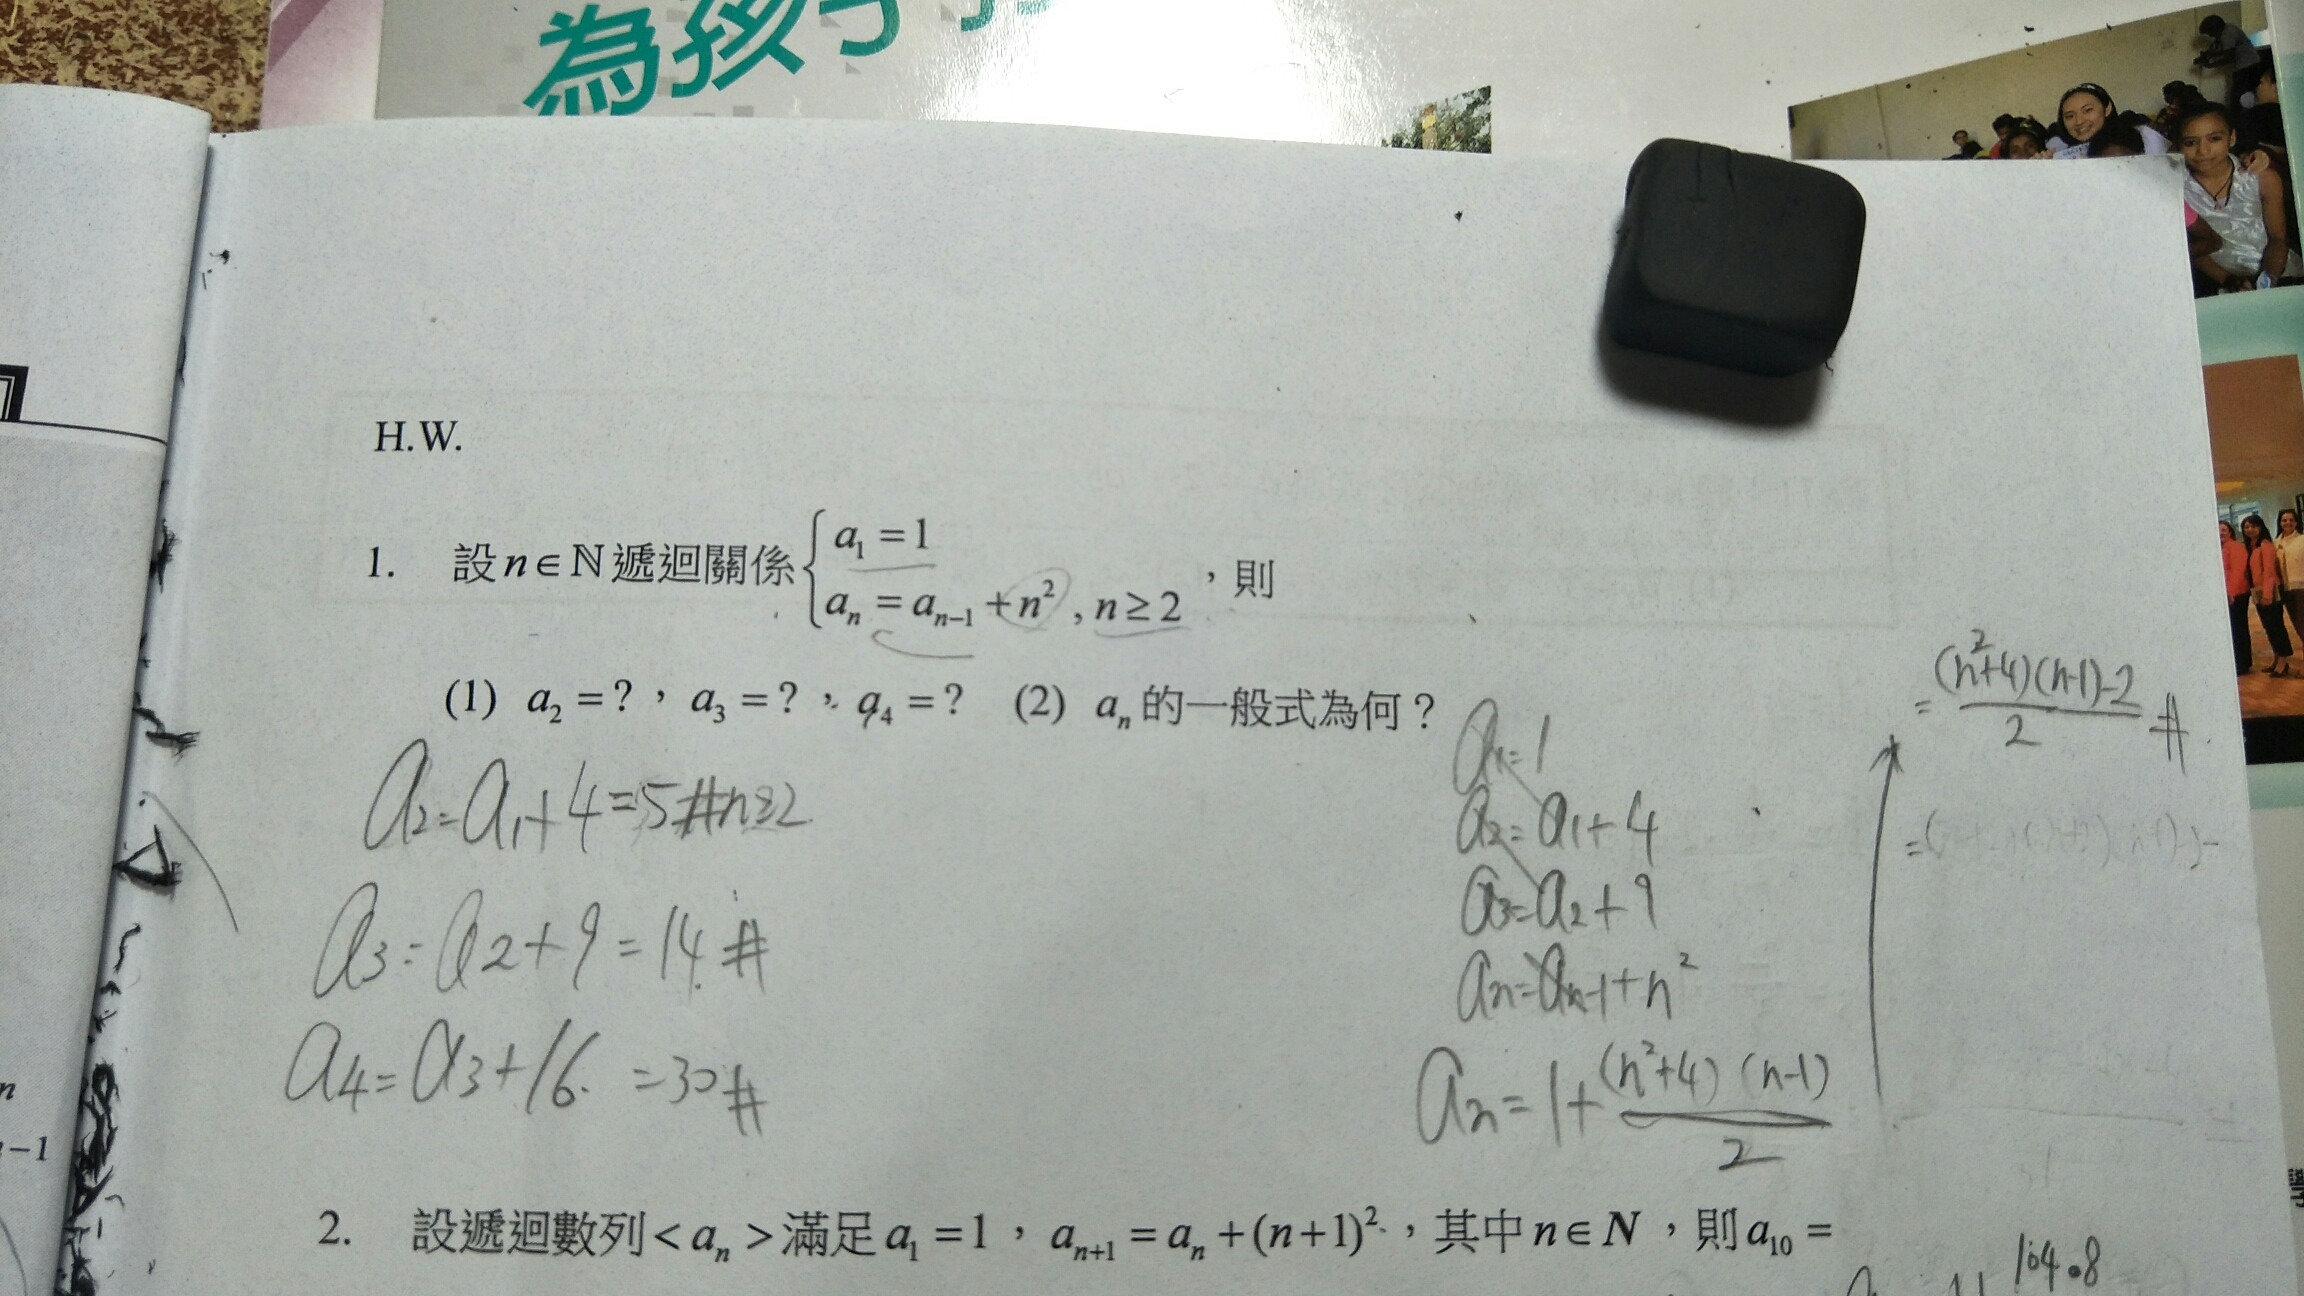 為孩子
H.W.
1. 設n∈ℕ遞迴關係{a₁=1
aₙ=aₙ₋₁+n²,n≥2，則
(1) a₂=?，a₃=?，a₄=? (2) aₙ的一般式為何？
a₂=a₁+4=5#n≥2
a₃=a₂+9=14#
a₄=a₃+16=30#
a₁=1
a₂=a₁+4
a₃=a₂+9
aₙ=aₙ₋₁+n²
aₙ=1+(n²+4)(n-1)/2
=(n²+4)(n-1)-2/2 #
2. 設遞迴數列<aₙ>滿足a₁=1，aₙ₊₁=aₙ+(n+1)²，其中n∈N，則a₁₀=
104.8
n
-1